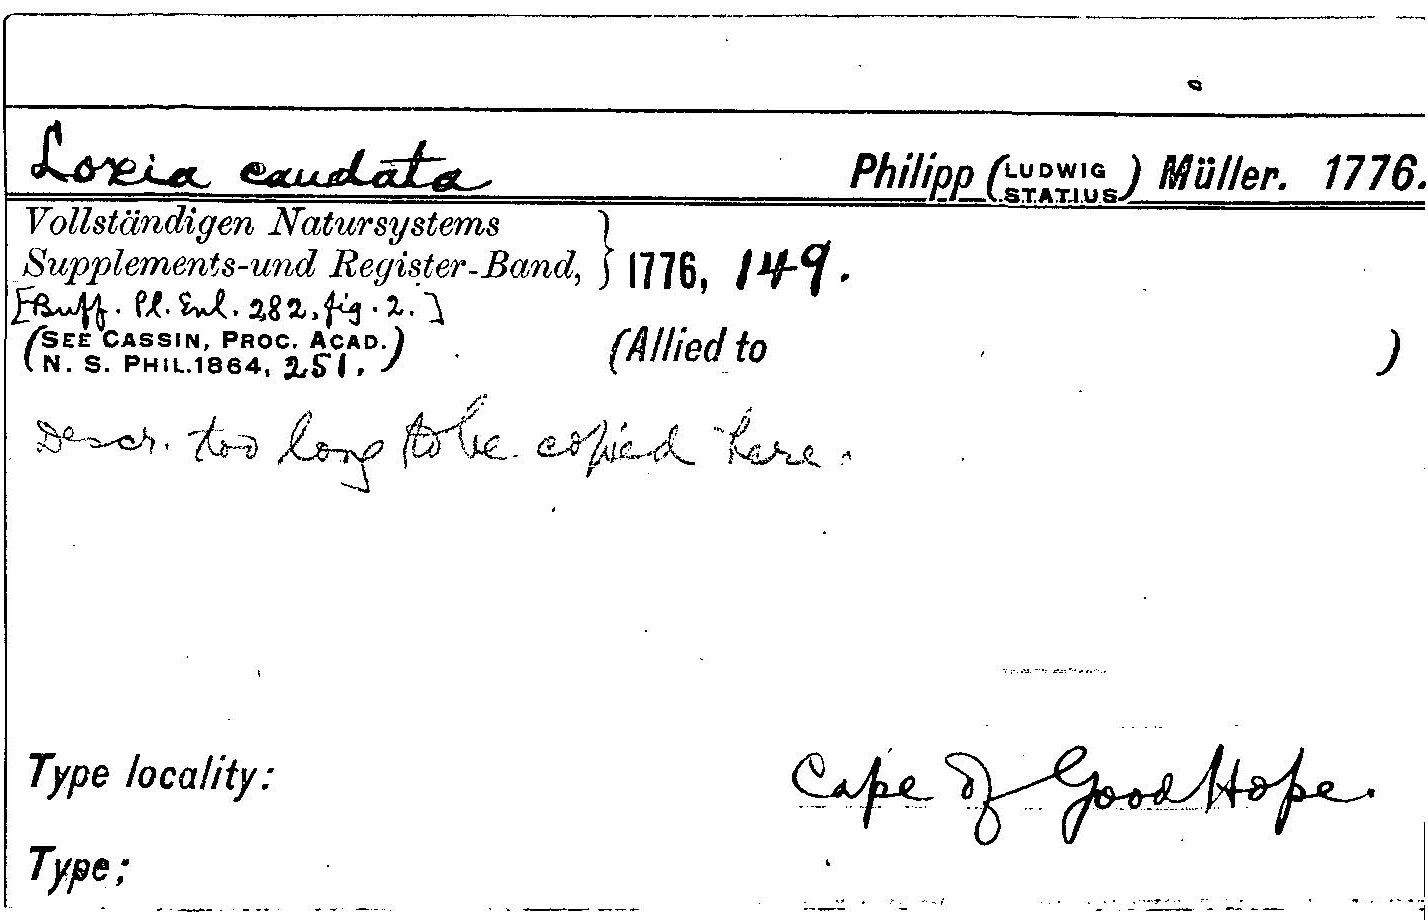 Loxia caudata Philipp (LUDWIG STATIUS) Müller. 1776.
Vollständigen Natursystems
Supplements-und Register-Band, } 1776, 149.
[Buff. Pl. Enl. 282, fig. 2.]
(SEE CASSIN, PROC. ACAD.
N. S. PHIL. 1864, 251.) (Allied to )
Descr. too long to be copied here.
Type locality: Cape of Good Hope.
Type;